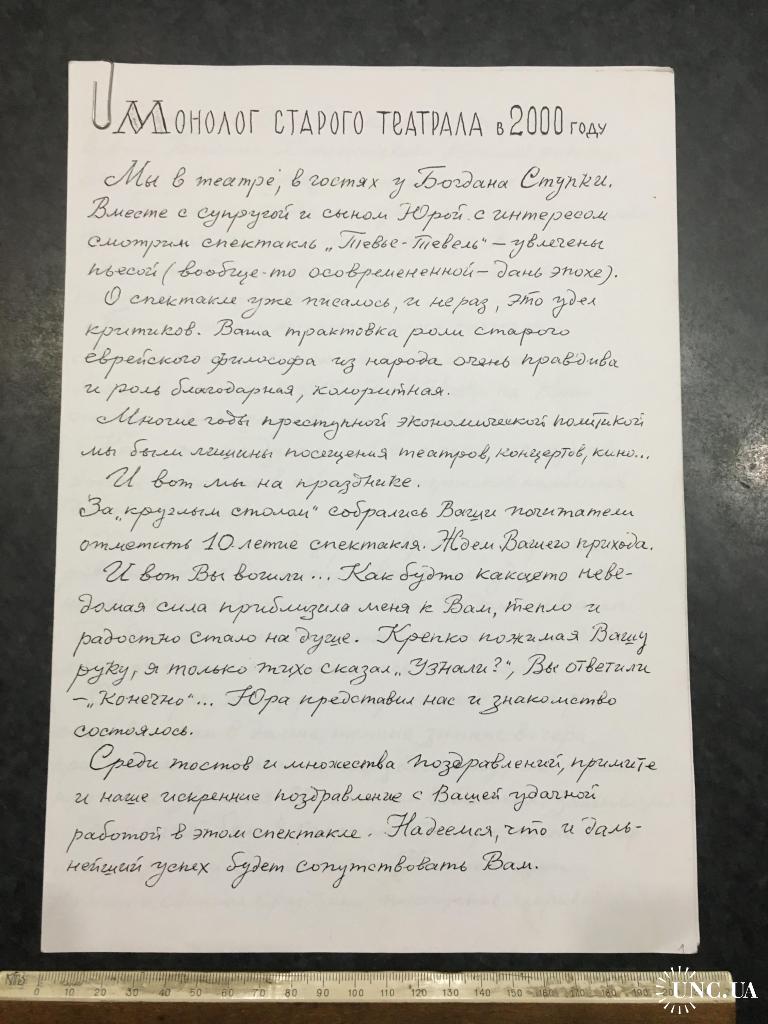 Монолог старого театрала в 2000 году
Мы в театре, в гостях у Богдана Ступки.
Вместе с супругой и сыном Юрой с интересом
смотрим спектакль „Тевье-Тевель“ – увлечены
пьесой (вообще-то осовремененной – дань эпохе).
О спектакле уже писалось, и не раз, это удел
критиков. Ваша трактовка роли старого
еврейского философа из народа очень правдива
и роль благодарная, колоритная.
Многие годы преступной экономической политикой
мы были лишины посещения театров, концертов, кино...
И вот мы на празднике.
За „круглым столом“ собрались Ваши почитатели
отметить 10-летие спектакля. Ждем Вашего прихода.
И вот Вы вошли... Как будто какаето неве-
домая сила приблизила меня к Вам, тепло и
радостно стало на душе. Крепко пожимая Вашу
руку, я только тихо сказал „Узнали?“, Вы ответили
– „Конечно“... Юра представил нас и знакомство
состоялось.
Среди тостов и множества поздравлений, примите
и наше искренние поздравление с Вашей удачной
работой в этом спектакле. Надеемся, что и даль-
нейший успех будет сопутствовать Вам.
1
0 10 20 30 40 50 60 70 80 90 100 110 120 130 140 150 160 170 180 190 200
UNC.UA